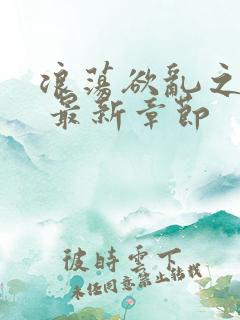 浪荡欲乱之
最新章节
彼时云下
未经同意禁止转载